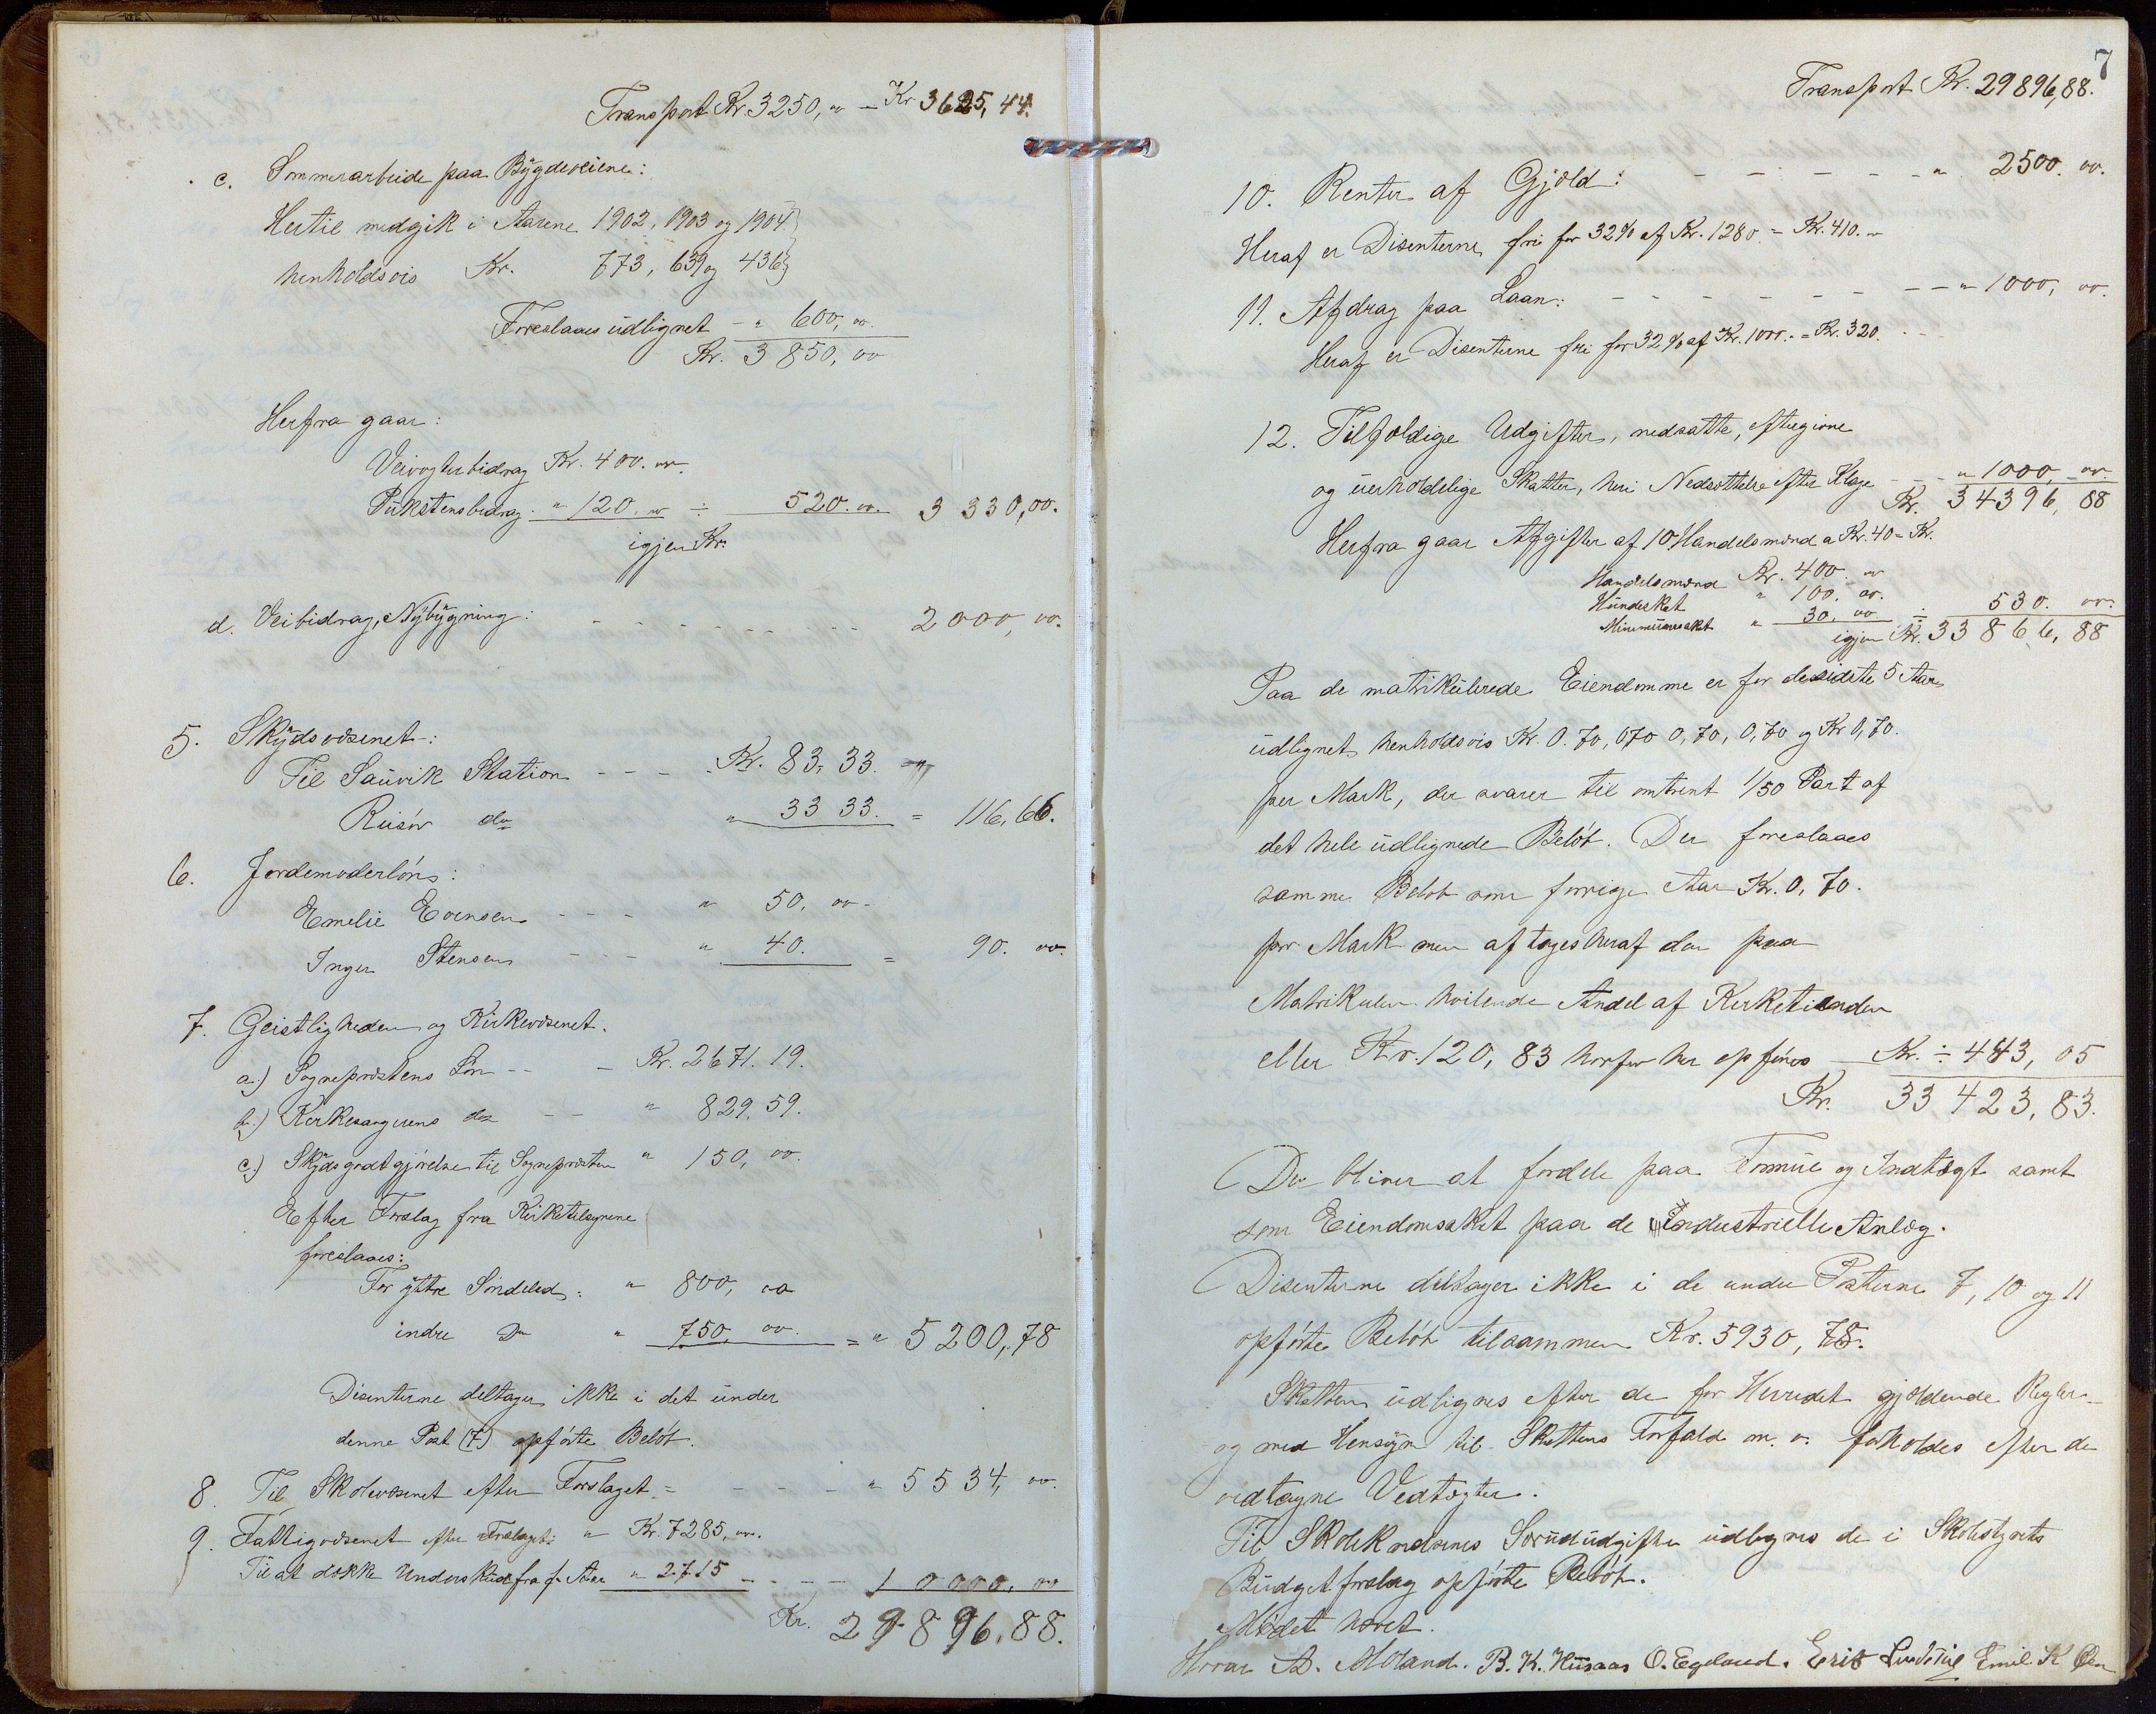 Transport Kr. 3250, " – Kr 3625, 44.
c. Sommerarbeide paa Bygdeveiene:
Hertil medgik i Aarene 1902, 1903 og 1904
henholdsvis Kr. 773, 639 og 436
Foreslaaes udlignet – " 600, oo.
Kr. 3850, oo
Herfra gaar:
Veivogterbidrag Kr. 400. oo.
Pukstensbidrag. " 120. oo ÷ 520. oo. 3330, oo.
igjen Kr.
d. Veibidrag, Nybygning: - - - - - - - 2000, oo.
5. Skydsvæsenet:
Til Sauvik Station - - - Kr. 83, 33.
Risør do " 33 33. = 116, 66.
6. Jordemoderløn:
Emelie Evensen - - - " 50, oo -
Inger Stensen - - - " 40. = 90. oo.
7. Geistligheden og Kirkevæsenet.
a.) Sogneprestens Løn - - - Kr. 2671. 19.
b.) Kirkesangerens do - - " 829. 59.
c.) Skydsgodtgjørelse til Sognepresten " 150, oo.
Efter Forslag fra Kirketilsynene
foreslaaes:
For ytre Søndeled: " 800, oo
indre Do " 750, oo. = " 5200, 78
Disenterne deltager ikke i det under
denne Post (7) opførte Beløb.
8. Til Skolevæsenet efter Forslaget = - - - - " 5534, oo.
9. Fattigvæsenet efter Forslaget: " Kr. 7285, oo.
Til at dække Underskud fra f. Aar " 2715 - - - - 10000, oo
Kr. 29896, 88.
7
Transport Kr. 29896, 88.
10. Renter af Gjæld: - - - - - - " 2500. oo.
Heraf er Disenterne fri for 32% af Kr. 1280 = Kr. 410. "
11. Afdrag paa Laan: - - - - - - - - " 1000, oo.
Heraf er Disenterne fri for 32% af Kr. 1000. = Kr. 320.
12. Tilfældige Udgifter, nedsatte, eftergivne
og uerholdelige Skatter, heri Nedsættelse efter Klage - - " 1000, oo.
Kr. 34396, 88
Herfra gaar Afgifter af 10 Handelsmænd a Kr. 40 = Kr.
Handelsmænd Kr. 400. "
Hundeskat " 100. oo.
Minimumsskat " 30, oo ÷ 530. oo.
igjen Kr. 33866, 88
Paa de matrikulerede Eiendomme er for de sidste 5 Aar
udlignet henholdsvis Kr. 0. 70, 070 0, 70, 0, 70 og Kr 0, 70.
per Mark, der svarer til omtrent 1/50 Part af
det hele udlignede Beløb. Der foreslaaes
samme Beløb som forrige Aar Kr. 0, 70.
per Mark men aftages heraf den paa
Matrikulen hvilende Andel af Kirketienden
eller Kr. 120, 83 horfor her opføres Kr. ÷ 443, 05
Kr. 33423, 83.
Der bliver at fordele paa Formue og Indtægt samt
som Eiendomsskat paa de Industrielle Anlæg.
Disenterne deltager ikke i de under Posterne 7, 10 og 11
opførte Beløb tilsammen Kr. 5930, 78.
Skatten udlignes efter de for Herredet gjældende Regler
og med Hensyn til Skattens Forfald m. v. forholdes efter de
vedtagne Vedtægter.
Til Skolekredsenes Særudgifter udlignes de i Skolestyrets
Budgetforslag opførte Beløb.
Mødet hævet.
A. Moland. B. K. Husaas O. Egeland. Emil K